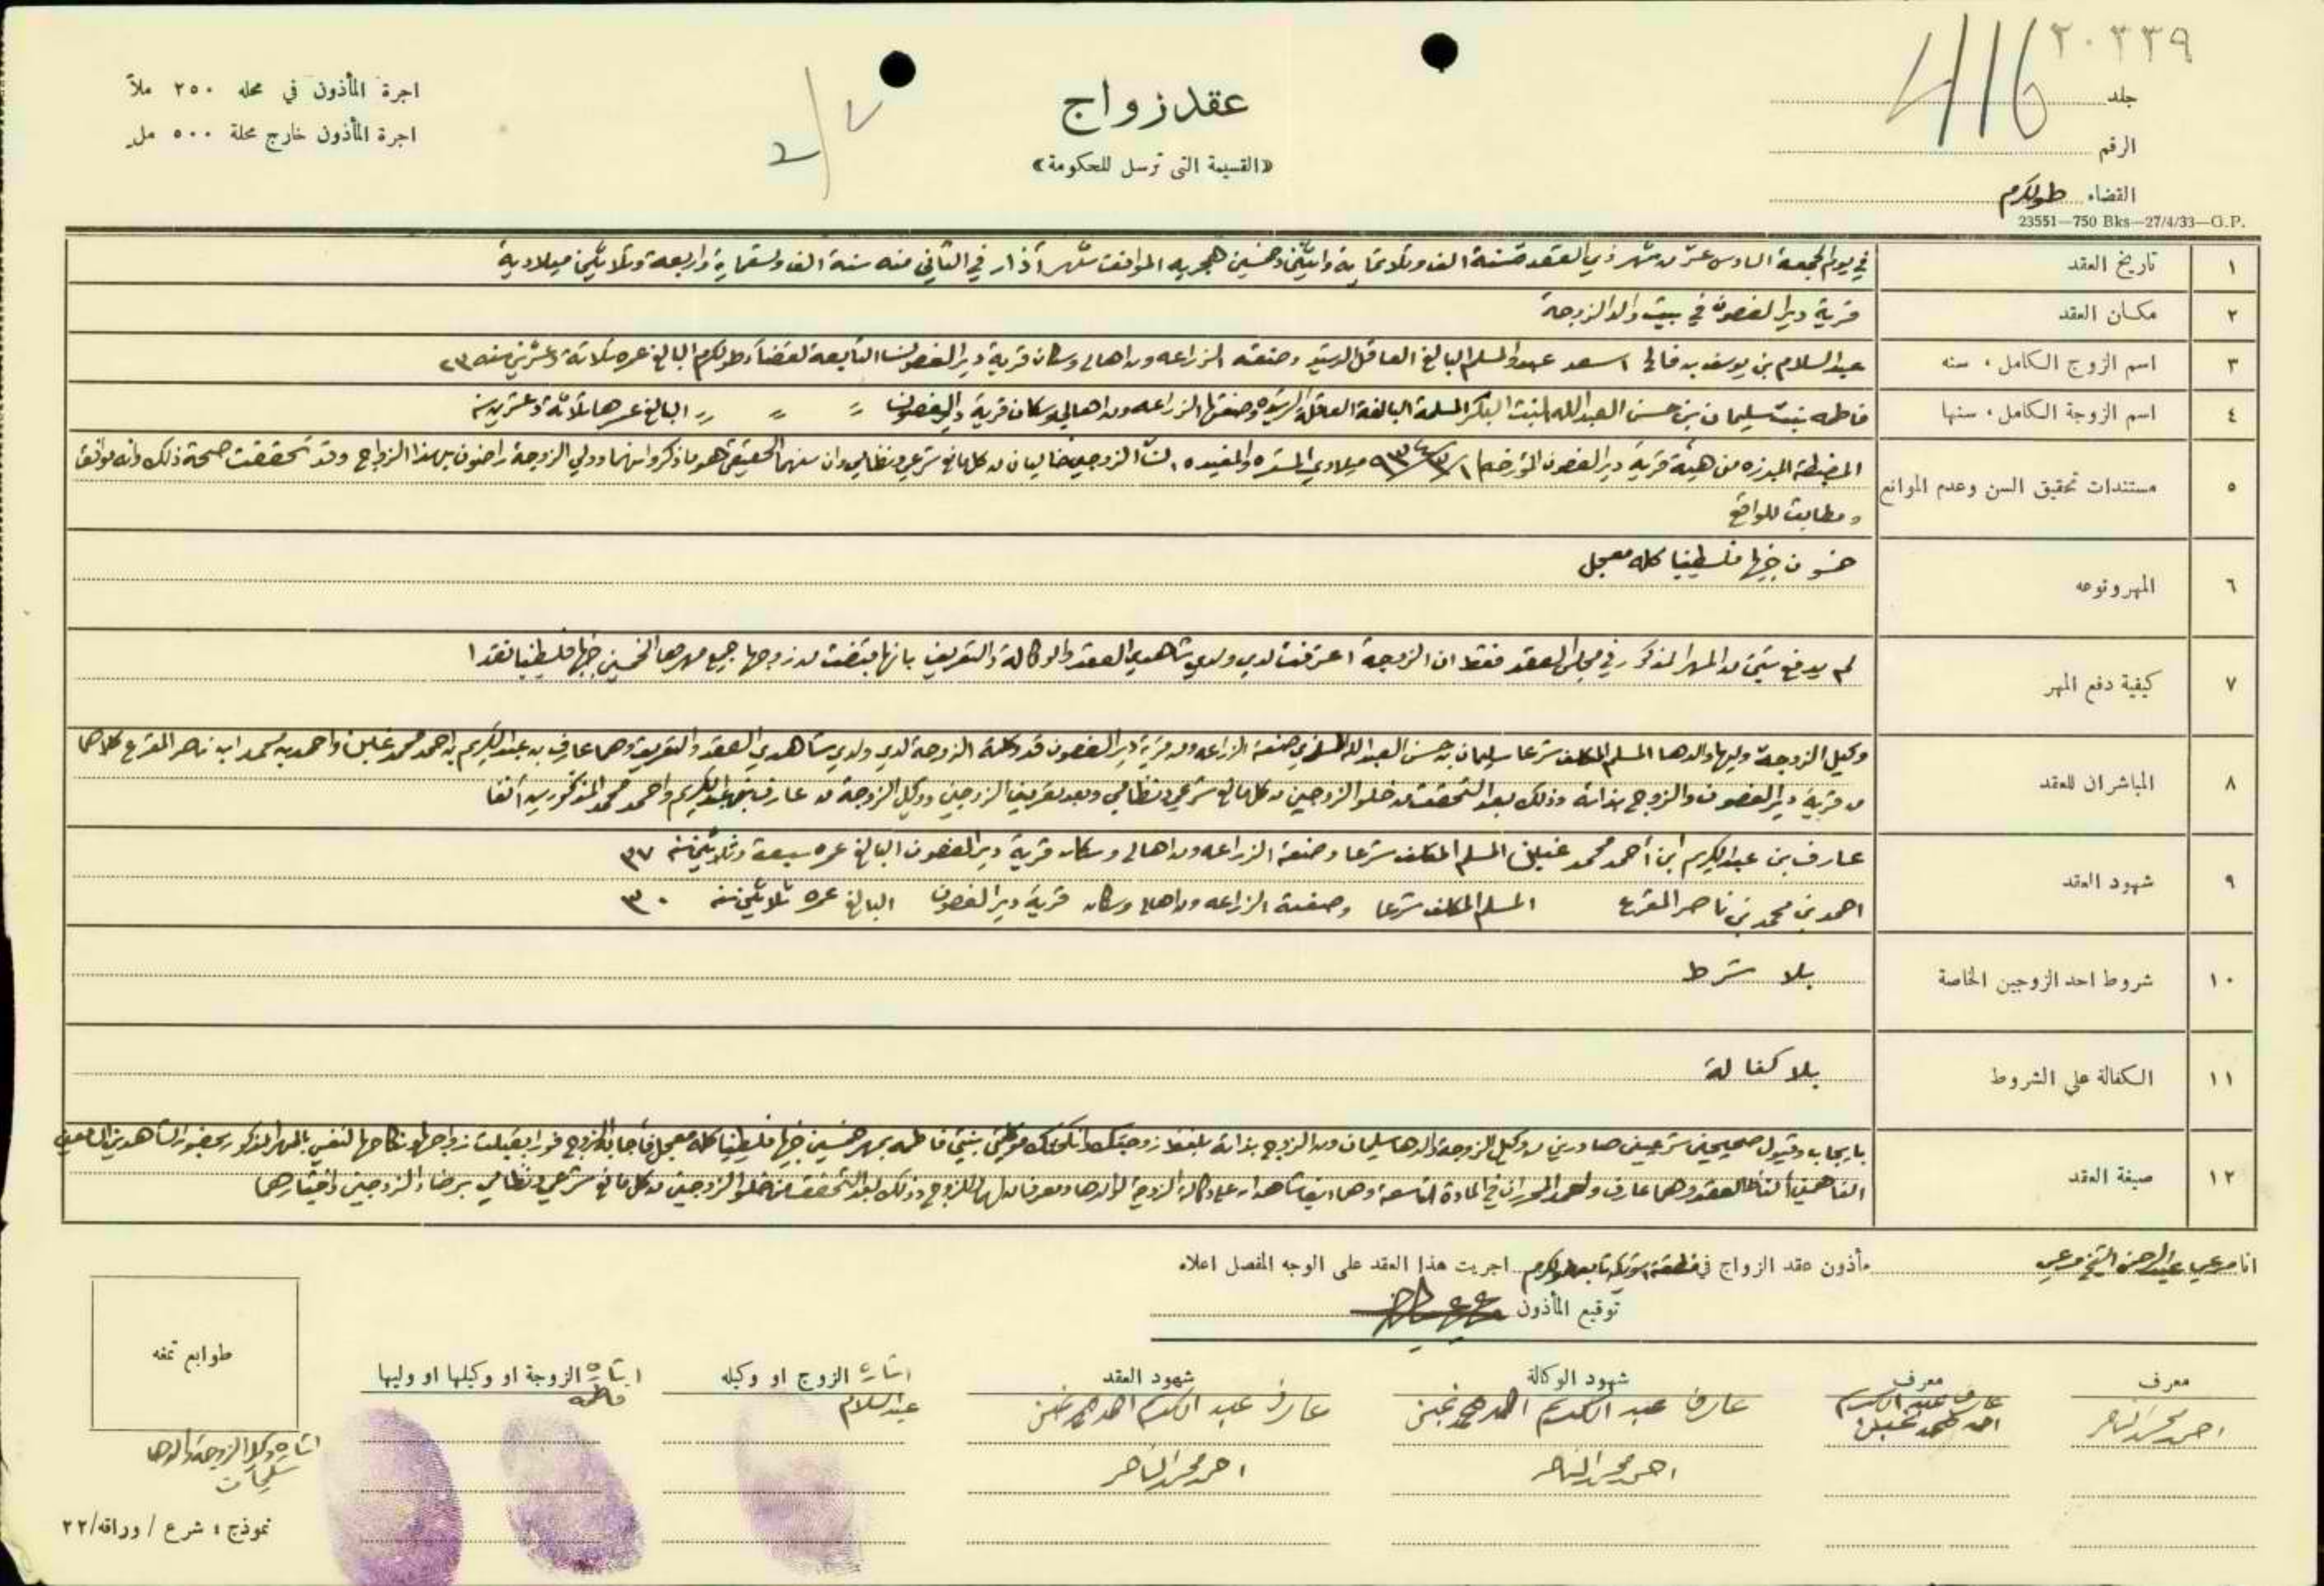 ٢٠٣٣٩
416
جلد
الرقم
القضاء طولكرم
23551—750 Bks—27/4/33—G.P.
عقد زواج
«القسيمة التى ترسل للحكومة»
٧/2
اجرة المأذون في محله ٢٥٠ ملاً
اجرة المأذون خارج محلة ٥٠٠ مل
١ تاريخ العقد في يوم الجمعة السادس عشر من شهر ذي القعدة سنة الف وثلاثماية واثنين وخمسين هجريه الموافق شهر آذار في الثاني منه سنة الف وتسعماية واربعة وثلاثين ميلادية
٢ مكان العقد قرية دير الغصون في بيت والد الزوجة
٣ اسم الزوج الكامل، سنه عبد السلام بن يوسف بن اسعد المسلم البالغ العاقل الرشيد وصنعته الزراعه ومن اهالي وسكان قرية دير الغصون التابعة لقضاء طولكرم البالغ عمره ثلاثة وعشرين سنه ٢٣
٤ اسم الزوجة الكامل، سنها فاطمه بنت سليمان بن حسن العبدالله البنت البكر المسلمة البالغة العاقلة الرشيده وصنعتها الزراعه ومن اهالي وسكان قرية دير الغصون = = = البالغ عمرها ثلاثة وعشرين سنه
٥ مستندات تحقيق السن وعدم الموانع المضبطة المبرزه من هيئة قرية دير الغصون المؤرخه ١/٣/٩٣٤ ميلادي والمفيده ان الزوجين خاليان من كل مانع شرعي ونظامي وان سنهما الحقيقي هو ما ذكر وانهما وولي الزوجة راضون بهذا الزواج وقد تحققت صحة ذلك وانه موافق
ومطابق للواقع
٦ المهر ونوعه خمسون جنيها فلسطينيا كله معجل
٧ كيفية دفع المهر لم يدفع شيئ من المهر المذكور في مجلس العقد فقط ان الزوجة اعترفت لدي ولدي شاهدي العقد والوكالة والتعريف بانها قبضت من زوجها جميع مهرها الخمسين جنيها فلسطينيا نقدا
٨ المباشران للعقد وكيل الزوجة وليها والدها المسلم المكلف شرعا سليمان بن حسن العبدالله صنعته الزراعه ومن قرية دير الغصون قد وكلته الزوجة لدي ولدي شاهدي العقد والتعريف وهما عارف بن عبد الكريم بن احمد محمد غبن واحمد بن محمد ابن ناصر المقرع كلاهما
من قرية دير الغصون والزوج بذاته وذلك بعد التحقق من خلو الزوجين من كل مانع شرعي ونظامي وبعد تعريف الزوجين ووكيل الزوجة من عارف بن عبد الكريم واحمد محمد المذكورين آنفا
٩ شهود العقد عارف بن عبد الكريم ابن أحمد محمد المسلم المكلف شرعا وصنعته الزراعه ومن اهالي وسكان قرية دير الغصون البالغ عمره سبعة وثلاثين سنه ٣٧
احمد بن محمد بن ناصر المقرع المسلم المكلف شرعا وصنعته الزراعه ومن اهالي وسكان قرية دير الغصون البالغ عمره ثلاثين سنه ٣٠
١٠ شروط احد الزوجين الخاصة بلا شرط
١١ الكفالة على الشروط بلا كفالة
١٢ صيغة العقد بايجاب وقبول صحيحين شرعيين صادرين من وكيل الزوجة والدها سليمان ومن الزوج بذاته بلفظ زوجتك وانكحتك موكلتي بنتي فاطمه بمهر خمسين جنيها فلسطينيا كله معجل فأجابه الزوج فورا بقبلت زواجها ونكاحها لنفسي بالمهر المذكور بحضور الشاهدين السامعين
الفاهمين ألفاظ العقد وهما عارف واحمد المحرران في المادة التاسعة وهما ايضا شاهدان على وكالة الزوجة لوالدها ومعرفان لها للزوج وذلك بعد التحقق من خلو الزوجين من كل مانع شرعي ونظامي برضاء الزوجين واختيارهما
انا مرعي عبد الرحمن الشيخ مرعي مأذون عقد الزواج في تابعة طولكرم اجريت هذا العقد على الوجه المفصل اعلاه
توقيع المأذون
معرف
احمد محمد الناصر
معرف
عارف عبد الكريم
احمد محمد
شهود الوكالة
عارف عبد الكريم احمد محمد
احمد محمد الناصر
شهود العقد
عارف عبد الكريم احمد محمد
احمد محمد الناصر
اشارة الزوج او وكيله
عبد السلام
اشارة الزوجة او وكيلها او وليها
فاطمه
طوابع تمغه
اشارة وكيل الزوجة والدها
سليمان
نموذج : شرع / وراقه/٢٢